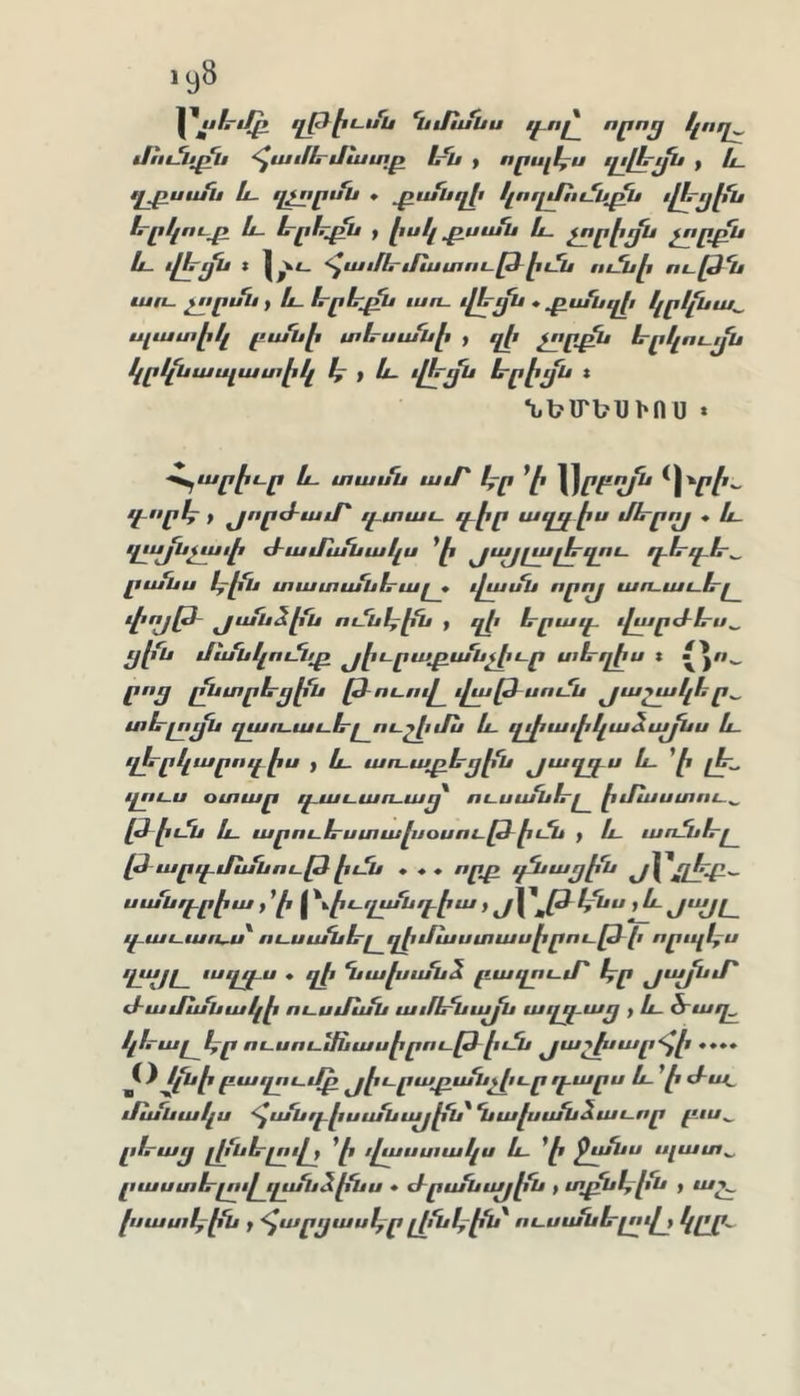 198
Ասեմք զթիւսն նմանս գոլ՝ որոց կող֊
մունքն համեմատք են, որպէս զվեցն, և
զքսան և զչորսն. քանզի կողմունքն վեցին
երկուք և երեքն, իսկ քսան և չորիցն չորքն
և վեցն։ Իւ համեմատութիւն ունի ութն
առ չորսն, և երեքն առ վեցն. քանզի կրկնա֊
պատիկ բանի տեսանի, զի չորքն երկուցն
կրկնապատիկ է, և վեցն երիցն։
ՆԵՄԵՍԻՈՍ.
Հարիւր և տասն ամ էր ՚ի Սրբոյն Գրի֊
գորէ, յորժամ գտաւ գիր ազգիս մերոյ. և
զայնչափ ժամանակս ՚ի յայլալեզու դեգե֊
րանս էին տատանեալ. վասն որոյ առաւել
փոյթ յանձին ունէին, զի երագ վարժես֊
ցին մանկունք յիւրաքանչիւր տեղիս։ Զո֊
րոց ընտրեցին թուով վաթսուն յաշակեր֊
տելոյն զառաւել ուշիմն և զփափկաձայնս և
զերկարոգիս, և առաքեցին յազգս և ՚ի լե֊
զուս օտար գաւառաց՝ ուսանել իմաստու֊
թիւն և արուեստախօսութիւն, և առնել
թարգմանութիւն . . . որք գնացին յԱղեք֊
սանդրիա, ՚ի Բիւզանդիա, յԱթէնս, և յայլ
գաւառս՝ ուսանել զիմաստասիրութի որպէս
զայլ ազգս. զի նախանձ բազում էր յայնմ
ժամանակի ուսման ամենայն ազգաց, և ծաղ֊
կեալ էր ուսումնասիրութիւն յաշխարհի ....
Օկնի բազումք յիւրաքանչիւր դարս և ՚ի ժա֊
մանակս հանդիսանային՝ նախանձաւոր բա֊
րեաց լինելով, ՚ի վաստակս և ՚ի ջանս պատ֊
րաստելով զանձինս. ժրանային, տքնէին, աշ֊
խատէին, հարցասէր լինէին՝ ուսանելով, կըր֊